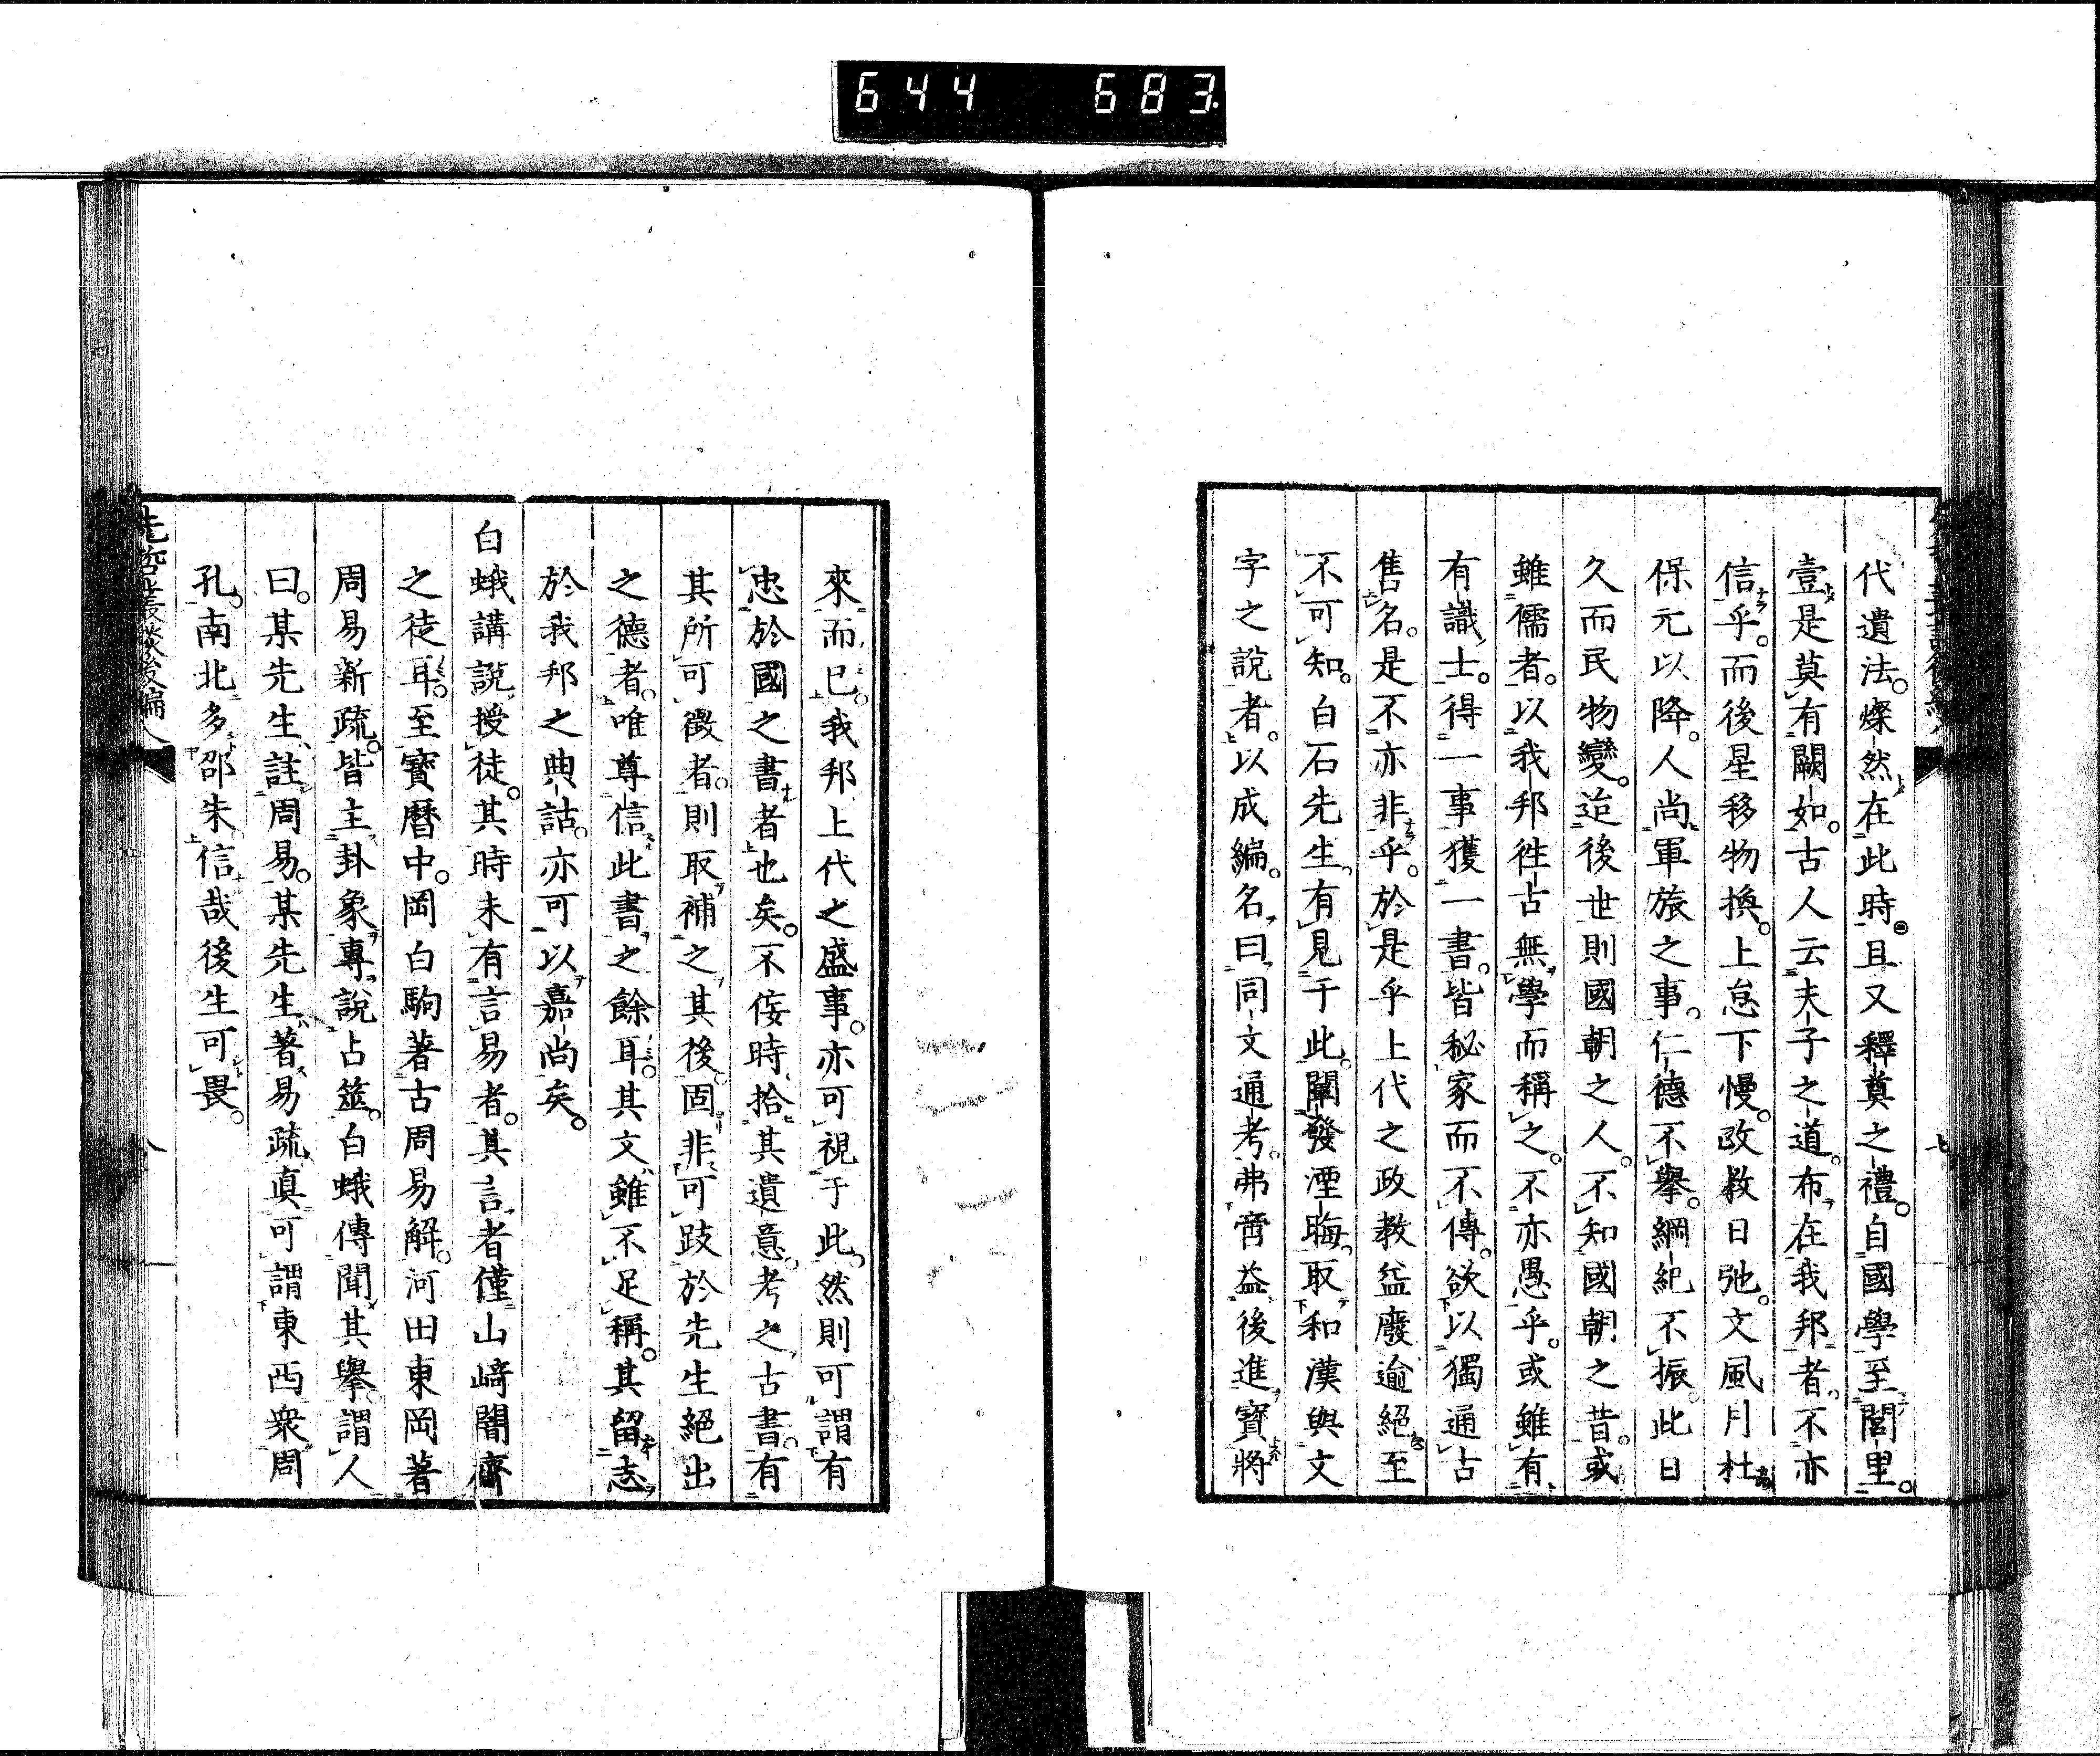 644 683
代遺法。燦然在此時。且又釋奠之禮。自國學至閭里。
壹是莫有闕如。古人云夫子之道。布在我邦者。不亦
信乎。而後星移物換。上怠下慢。政教日弛。文風月杜
保元以降。人尚軍旅之事。仁德不擧。綱紀不振。此日
久而民物變。迨後世則國朝之人。不知國朝之昔。或
雖儒者。以我邦徃古無學而稱之。不亦愚乎。或雖有
有識士。得一事獲一書。皆秘家而不傳。欲以獨通古
售名。是不亦非乎。於是乎上代之政教益廢逾絕至
不可知。白石先生有見于此。闡發湮晦。取和漢與文
字之說者。以成編。名曰同文通考。弗啻益後進寶將
來而已。我邦上代之盛事。亦可視于此。然則可謂有
忠於國之書者也矣。不佞時拾其遺意。考之古書。有
其所可徵者。則取補之其後。固非可跂於先生絕出
之德者。唯尊信此書之餘耳。其文雖不足稱。其留志
於我邦之典詁。亦可以嘉尚矣。
白蛾講說授徒。其時未有言易者。其言者僅山﨑闇齋
之徒耳。至寶曆中。岡白駒著古周易解。河田東岡著
周易新疏。皆主卦象專說占筮。白蛾傳聞其擧。謂人
曰。某先生註周易。某先生著易疏。眞可謂東西衆周
孔。南北多邵朱。信哉後生可畏。
先哲叢談後編
八